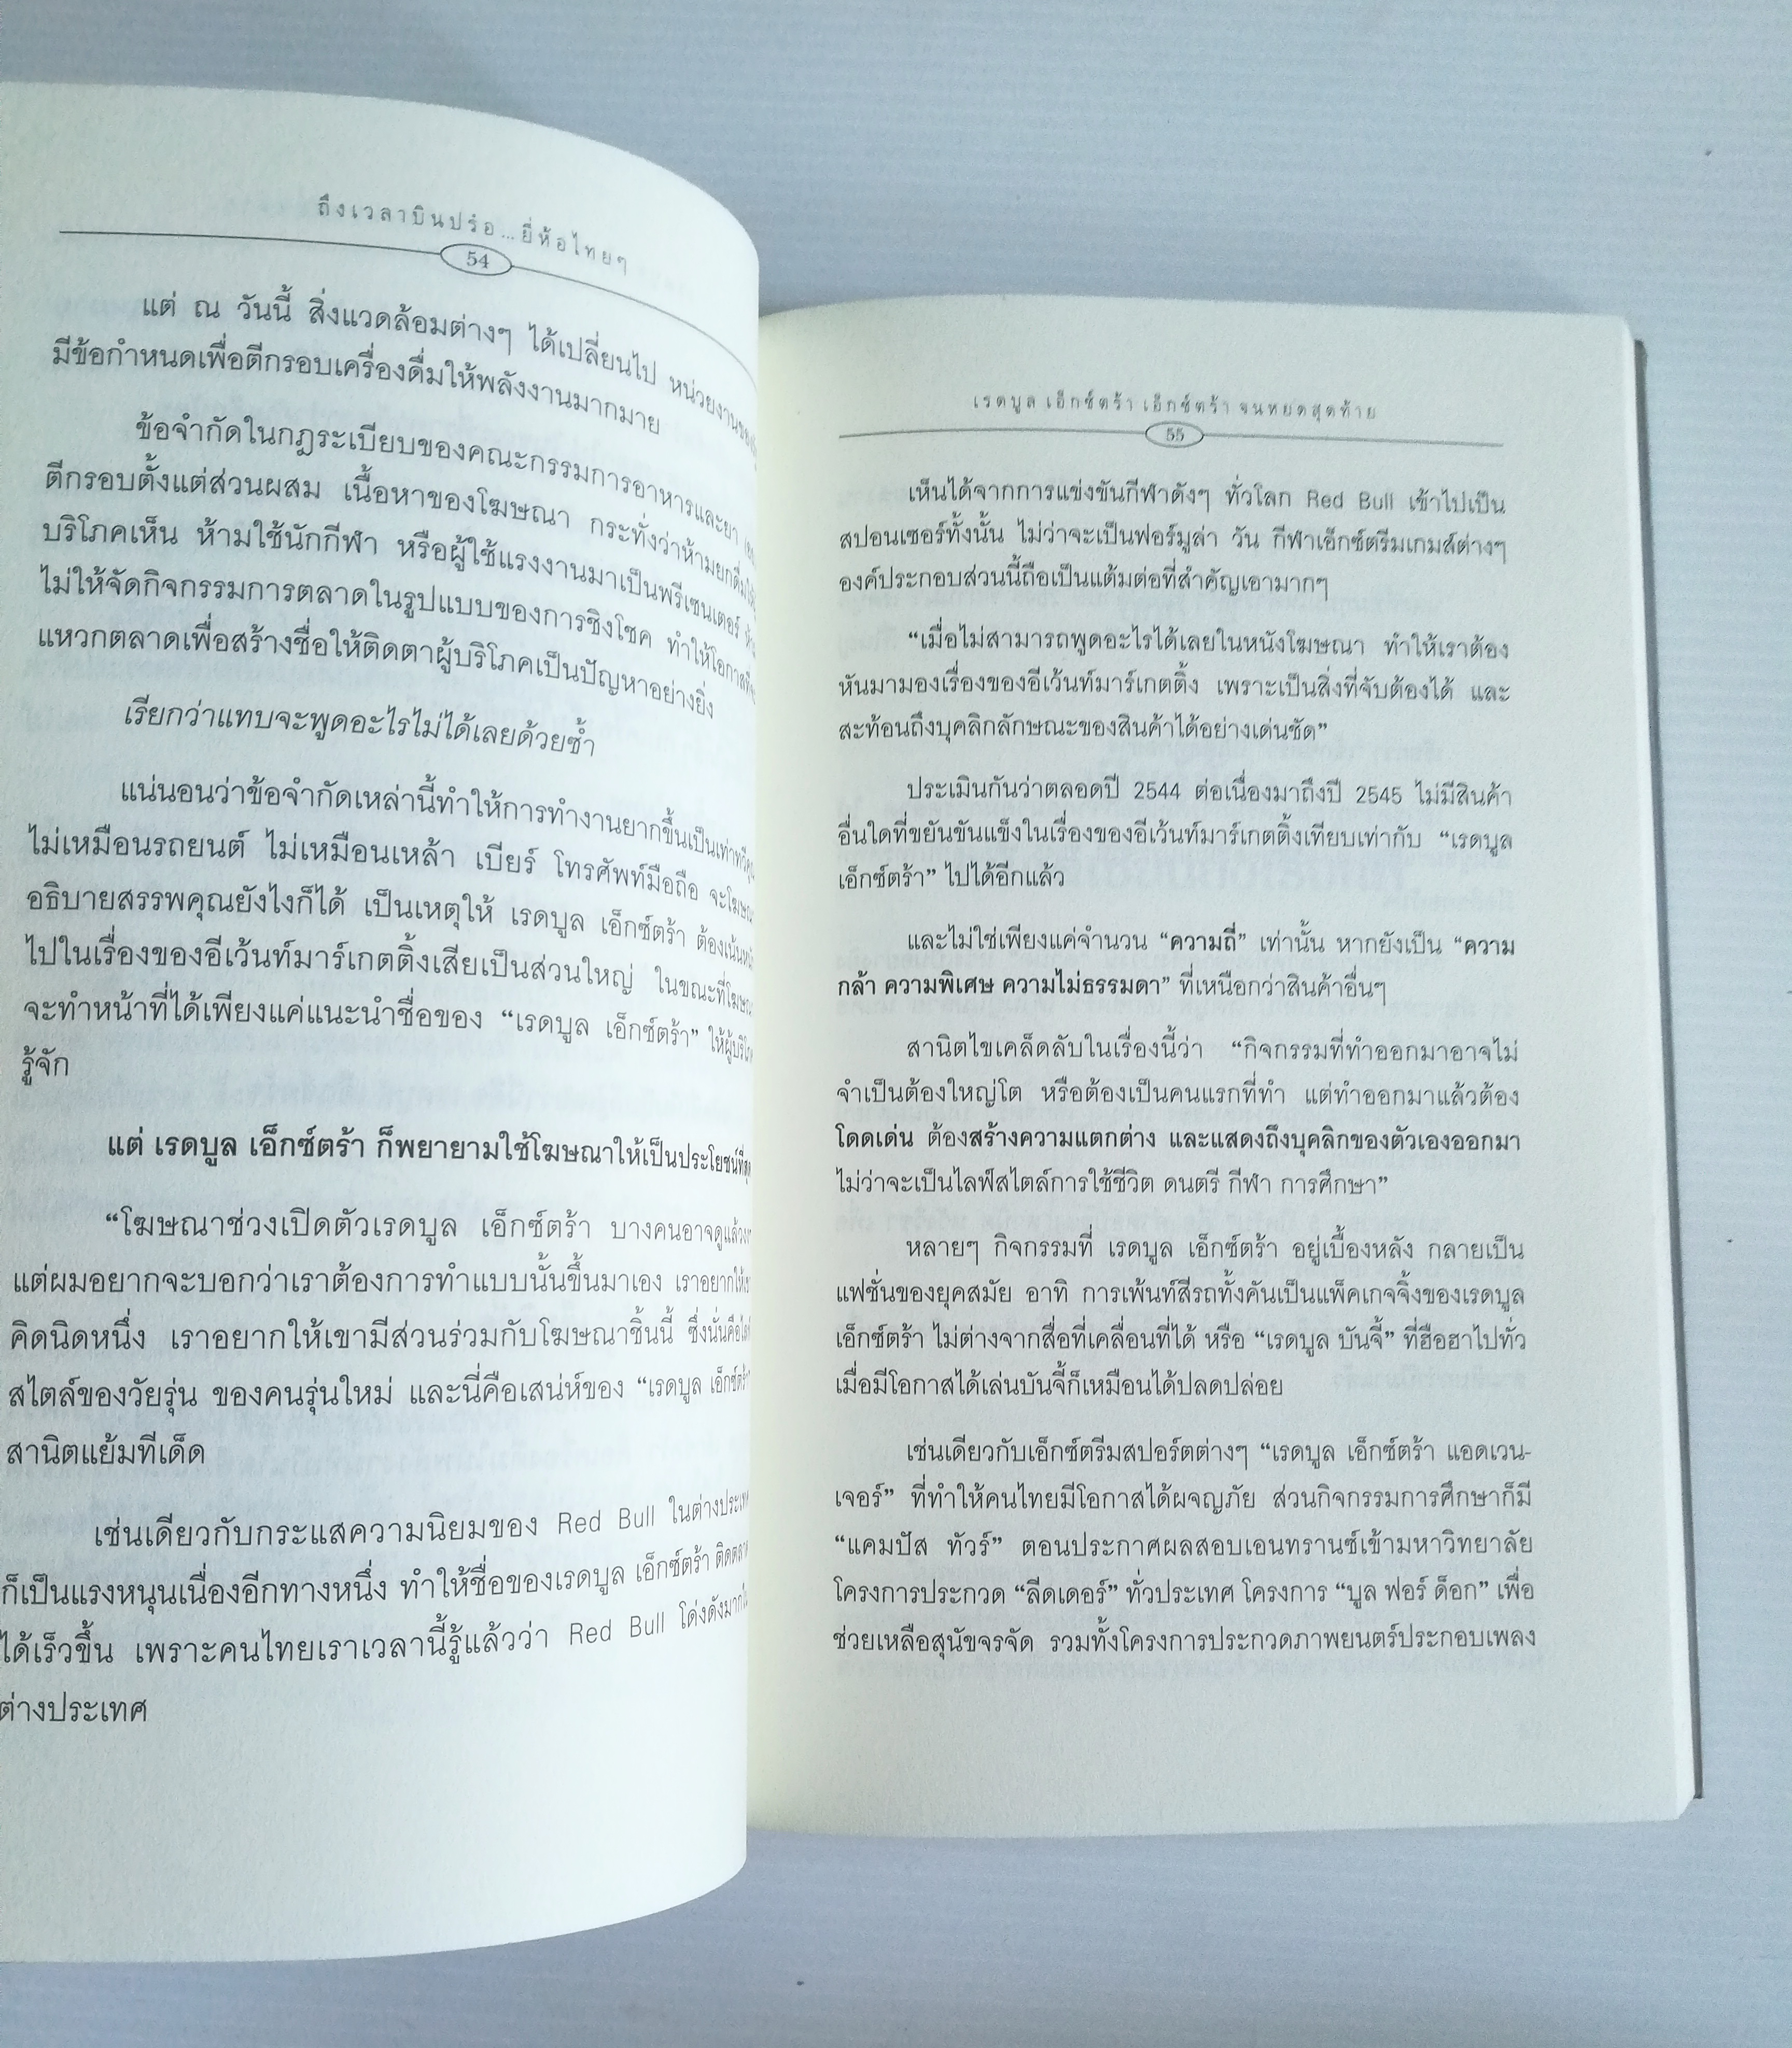 ถึงเวลาบินปร๋อ...ยี่ห้อไทยๆ
54
แต่ ณ วันนี้ สิ่งแวดล้อมต่างๆ ได้เปลี่ยนไป หน่วยงานของรัฐ
มีข้อกำหนดเพื่อตีกรอบเครื่องดื่มให้พลังงานมากมาย
ข้อจำกัดในกฎระเบียบของคณะกรรมการอาหารและยา
ตีกรอบตั้งแต่ส่วนผสม เนื้อหาของโฆษณา กระทั่งว่าห้ามยกดื่มให้
บริโภคเห็น ห้ามใช้นักกีฬา หรือผู้ใช้แรงงานมาเป็นพรีเซนเตอร์
ไม่ให้จัดกิจกรรมการตลาดในรูปแบบของการชิงโชค ทำให้โอกาสที่จะ
แหวกตลาดเพื่อสร้างชื่อให้ติดตาผู้บริโภคเป็นปัญหาอย่างยิ่ง
เรียกว่าแทบจะพูดอะไรไม่ได้เลยด้วยซ้ำ
แน่นอนว่าข้อจำกัดเหล่านี้ทำให้การทำงานยากขึ้นเป็นเท่าทวีคูณ
ไม่เหมือนรถยนต์ ไม่เหมือนเหล้า เบียร์ โทรศัพท์มือถือ จะโฆษณา
อธิบายสรรพคุณยังไงก็ได้ เป็นเหตุให้ เรดบูล เอ็กซ์ตร้า ต้องเน้นหนัก
ไปในเรื่องของอีเว้นท์มาร์เกตติ้งเสียเป็นส่วนใหญ่ ในขณะที่โฆษณา
จะทำหน้าที่ได้เพียงแค่แนะนำชื่อของ “เรดบูล เอ็กซ์ตร้า” ให้ผู้บริโภค
รู้จัก
แต่ เรดบูล เอ็กซ์ตร้า ก็พยายามใช้โฆษณาให้เป็นประโยชน์ที่สุด
“โฆษณาช่วงเปิดตัวเรดบูล เอ็กซ์ตร้า บางคนอาจดูแล้วงง
แต่ผมอยากจะบอกว่าเราต้องการทำแบบนั้นขึ้นมาเอง เราอยากให้เขา
คิดนิดหนึ่ง เราอยากให้เขามีส่วนร่วมกับโฆษณาชิ้นนี้ ซึ่งนั่นคือไลฟ์
สไตล์ของวัยรุ่น ของคนรุ่นใหม่ และนี่คือเสน่ห์ของ “เรดบูล เอ็กซ์ตร้า”
สานิตแย้มทีเด็ด
เช่นเดียวกับกระแสความนิยมของ Red Bull ในต่างประเทศ
ก็เป็นแรงหนุนเนื่องอีกทางหนึ่ง ทำให้ชื่อของเรดบูล เอ็กซ์ตร้า ติดตลาด
ได้เร็วขึ้น เพราะคนไทยเราเวลานี้รู้แล้วว่า Red Bull โด่งดังมากใน
ต่างประเทศ
เรดบูล เอ็กซ์ตร้า เอ็กซ์ตร้า จนหยดสุดท้าย
55
เห็นได้จากการแข่งขันกีฬาดังๆ ทั่วโลก Red Bull เข้าไปเป็น
สปอนเซอร์ทั้งนั้น ไม่ว่าจะเป็นฟอร์มูล่า วัน กีฬาเอ็กซ์ตรีมเกมส์ต่างๆ
องค์ประกอบส่วนนี้ถือเป็นแต้มต่อที่สำคัญเอามากๆ
“เมื่อไม่สามารถพูดอะไรได้เลยในหนังโฆษณา ทำให้เราต้อง
หันมามองเรื่องของอีเว้นท์มาร์เกตติ้ง เพราะเป็นสิ่งที่จับต้องได้ และ
สะท้อนถึงบุคลิกลักษณะของสินค้าได้อย่างเด่นชัด”
ประเมินกันว่าตลอดปี 2544 ต่อเนื่องมาถึงปี 2545 ไม่มีสินค้า
อื่นใดที่ขยันขันแข็งในเรื่องของอีเว้นท์มาร์เกตติ้งเทียบเท่ากับ “เรดบูล
เอ็กซ์ตร้า” ไปได้อีกแล้ว
และไม่ใช่เพียงแค่จำนวน “ความถี่” เท่านั้น หากยังเป็น “ความ
กล้า ความพิเศษ ความไม่ธรรมดา” ที่เหนือกว่าสินค้าอื่นๆ
สานิตไขเคล็ดลับในเรื่องนี้ว่า “กิจกรรมที่ทำออกมาอาจไม่
จำเป็นต้องใหญ่โต หรือต้องเป็นคนแรกที่ทำ แต่ทำออกมาแล้วต้อง
โดดเด่น ต้องสร้างความแตกต่าง และแสดงถึงบุคลิกของตัวเองออกมา
ไม่ว่าจะเป็นไลฟ์สไตล์การใช้ชีวิต ดนตรี กีฬา การศึกษา”
หลายๆ กิจกรรมที่ เรดบูล เอ็กซ์ตร้า อยู่เบื้องหลัง กลายเป็น
แฟชั่นของยุคสมัย อาทิ การเพ้นท์สีรถทั้งคันเป็นแพ็คเกจจิ้งของเรดบูล
เอ็กซ์ตร้า ไม่ต่างจากสื่อที่เคลื่อนที่ได้ หรือ “เรดบูล บันจี้” ที่ฮือฮาไปทั่ว
เมื่อมีโอกาสได้เล่นบันจี้ก็เหมือนได้ปลดปล่อย
เช่นเดียวกับเอ็กซ์ตรีมสปอร์ตต่างๆ “เรดบูล เอ็กซ์ตร้า แอดเวน-
เจอร์” ที่ทำให้คนไทยมีโอกาสได้ผจญภัย ส่วนกิจกรรมการศึกษาก็มี
“แคมปัส ทัวร์” ตอนประกาศผลสอบเอนทรานซ์เข้ามหาวิทยาลัย
โครงการประกวด “ลีดเดอร์” ทั่วประเทศ โครงการ “บูล ฟอร์ ด็อก” เพื่อ
ช่วยเหลือสุนัขจรจัด รวมทั้งโครงการประกวดภาพยนตร์ประกอบเพลง